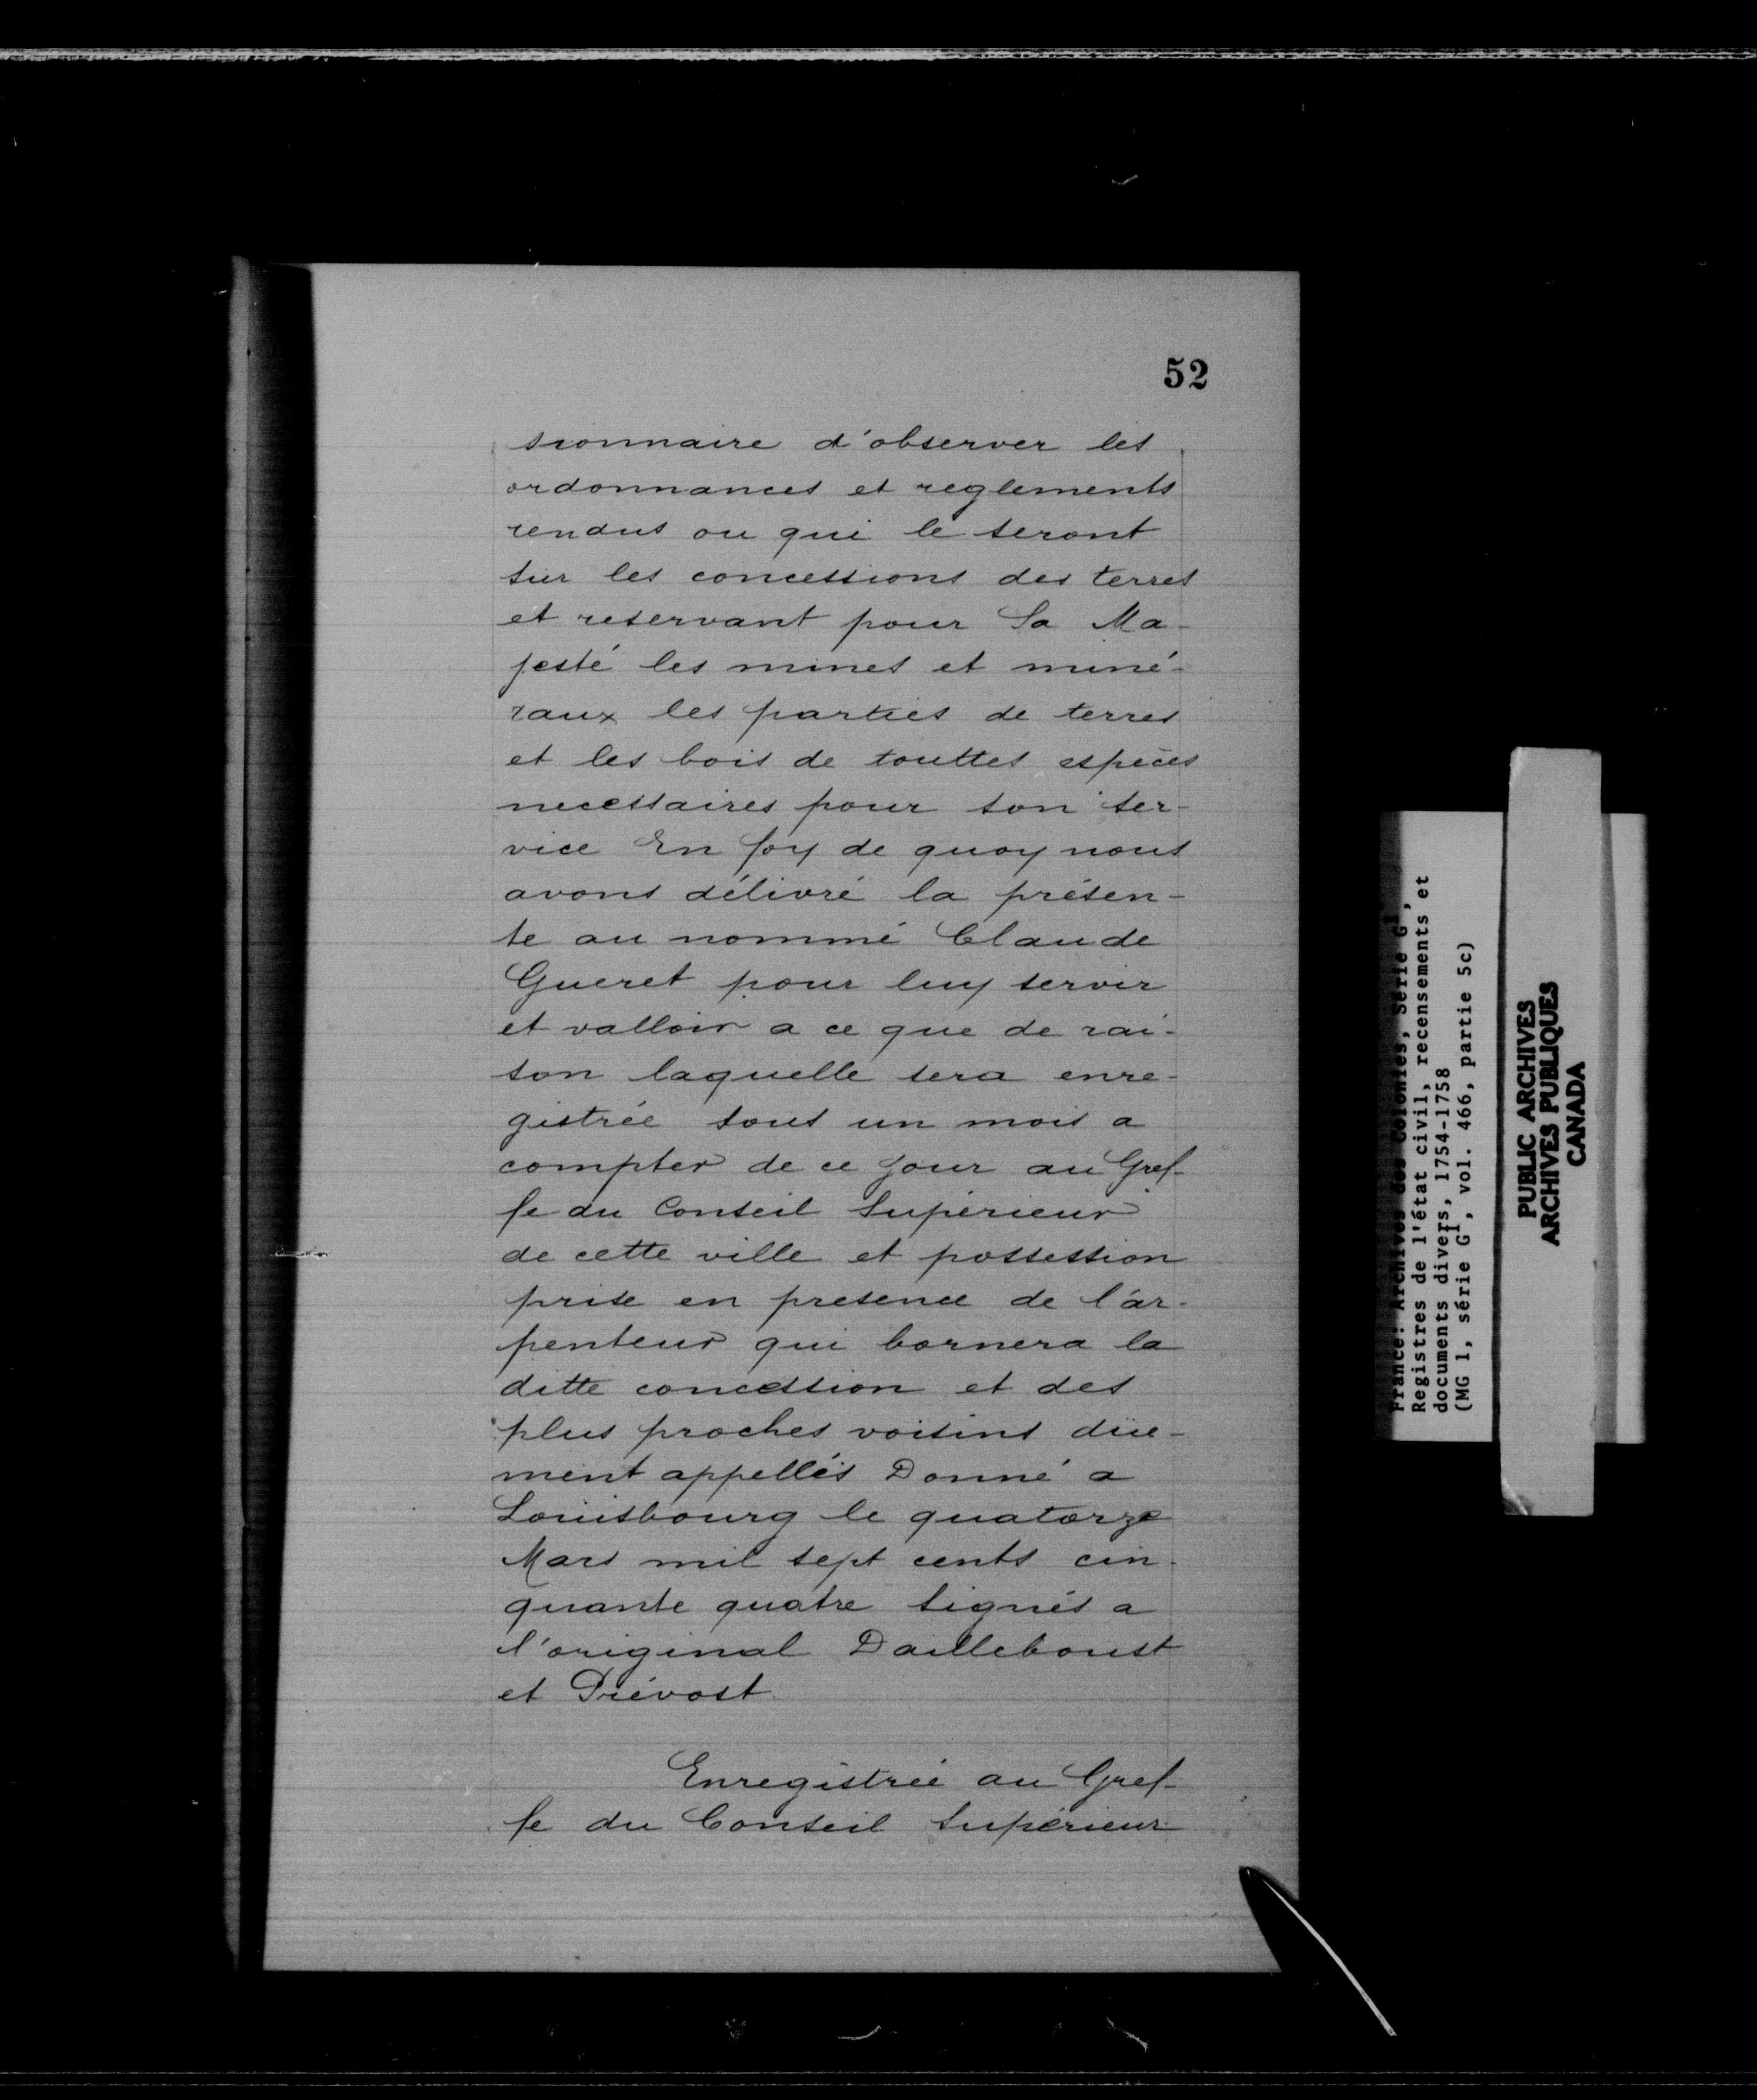 52
sionnaire d'observer les
ordonnances et reglements
rendus ou qui le seront
sur les concessions des terres
et reservant pour Sa Ma-
jesté les mines et miné-
raux les parties de terres
et les bois de touttes espèces
necessaires pour son ser-
vice En foy de quoy nous
avons délivré la présen-
te au nommé Claude
Gueret pour luy servir
et valloir a ce que de rai-
son laquelle sera enre-
gistrée sous un mois a
compter de ce jour au Gref-
fe du Conseil Supérieur
de cette ville et possession
prise en presence de l'ar-
penteur qui bornera la
ditte concession et des
plus proches voisins düe-
ment appellés Donné a
Louisbourg le quatorze
Mars mil sept cents cin-
quante quatre signés a
l'original Dailleboust
et Prévost.
Enregistrée au Gref-
fe du Conseil Supérieur
France: Archives des Colonies, Série G1,
Registres de l'état civil, recensements et
documents divers, 1754-1758
(MG 1, série G1, vol. 466, partie 5c)
PUBLIC ARCHIVES
ARCHIVES PUBLIQUES
CANADA